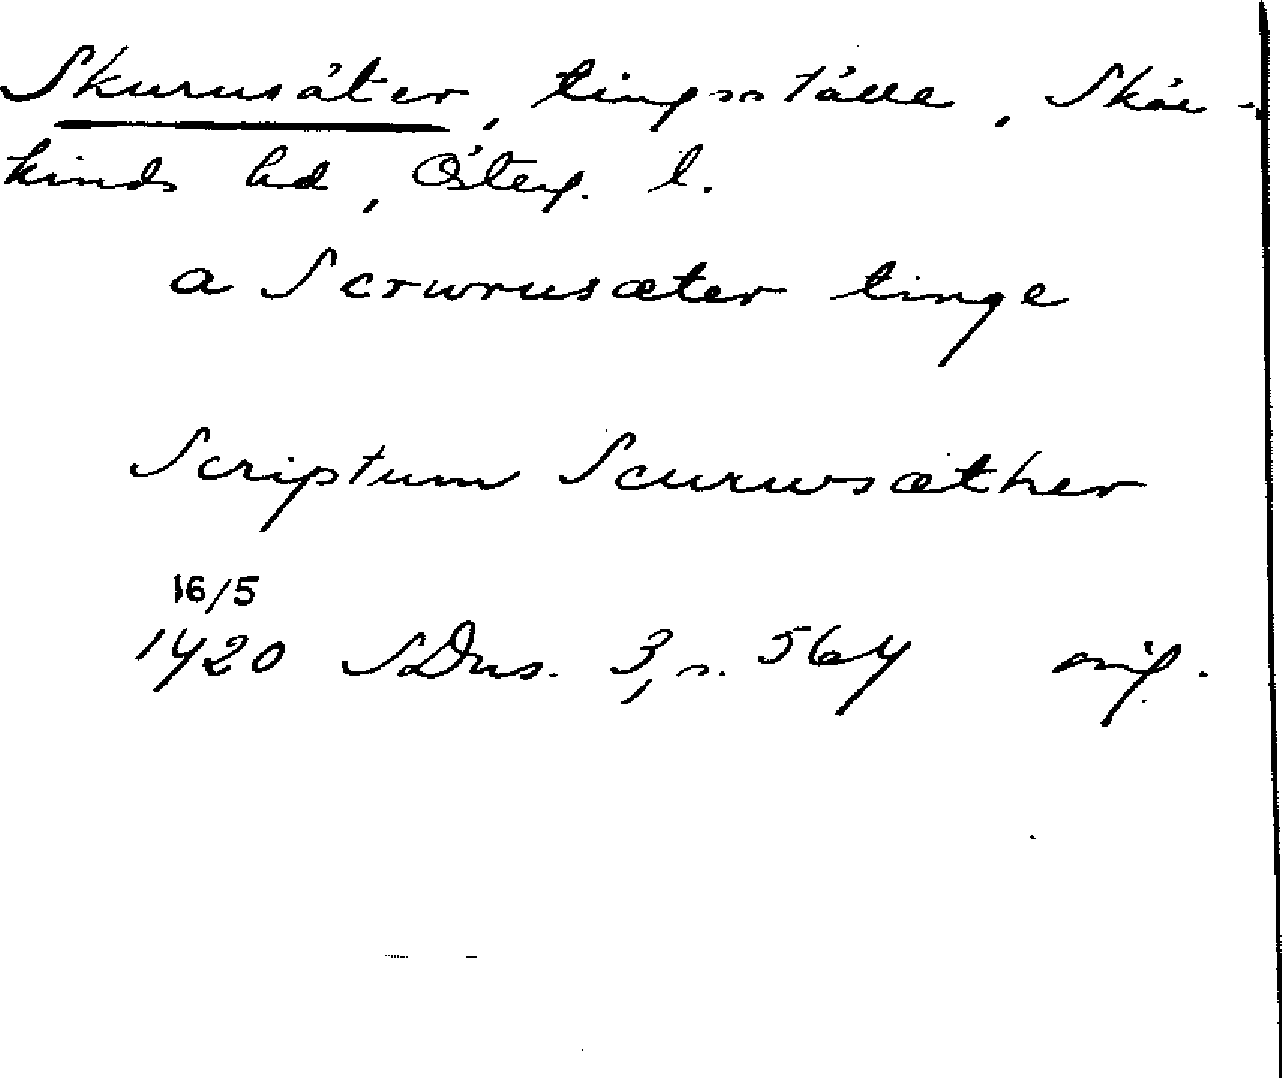 Skurusäter, tingsställe, Skär-
kinds hd, Österg. l.
a Scrwrusæter tinge
Scriptum Scurwsæther
16/5
1420 SDns. 3, s. 564 orig.